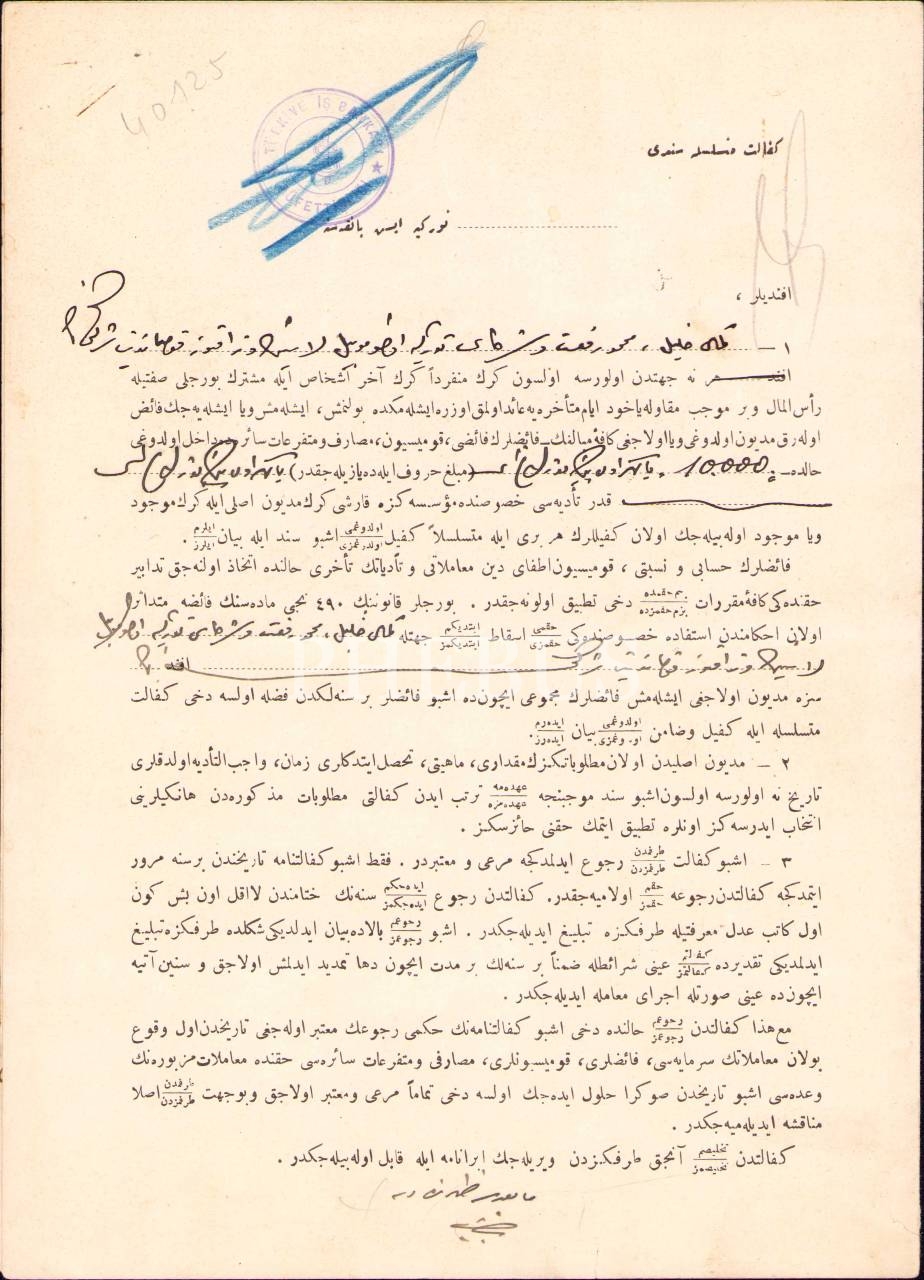 40125
TÜRKİYE İŞ BANKASI ★
كفالت متسلسله سندى
توركيه ايش بانقه‌سه
افنديلر ،
١ — كمال خليل ، محمود رفعت و شركاسى توركيه اوطوموبيل لاستيك
هر نه جهتدن اولورسه اولسون كرك منفرداً كرك آخر اشخاص ايله مشترك بورجلى صفتيله
رأس‌المال وبر موجب مقاوله ياخود ايام متأخره‌يه عائد اولمق اوزره ايشله‌مكده بولنمش، ايشله‌مش ويا ايشله‌يه‌جك فائض
اوله‌رق مديون اولدوغى ويا اولاجغى كافهٔ مبالغك ــ فائضلرك فائضى ، قوميسيون، مصارف ومتفرعات سائره‌سى داخل اولدوغى
حالده — 10.000 (مبلغ حروف ايله ده يازيله‌جقدر)
قدر تأديه‌سى خصوصنده مؤسسه‌كزه قارشى كرك مديون اصلى ايله كرك موجود
ويا موجود اوله‌بيله‌جك اولان كفيللرك هر برى ايله متسلسلاً كفيل اولدوغمى اولدوغمزى اشبو سند ايله بيان ايلرم ايلرز .
فائضلرك حسابى و نسبتى ، قوميسيون اطفاى دين معاملاتى و تأدياتك تأخرى حالنده اتخاذ اولنه‌جق تدابير
حقنده‌كى كافهٔ مقررات بنم حقمده بزم حقمزده دخى تطبيق اولونه‌جقدر . بورجلر قانوننك ٤٩٠ نجى ماده‌سنك فائضه متدائر
اولانى احكامندن استفاده خصوصنده‌كى حقمى حقمزى اسقاط ايتديكم ايتديكمز جهتله كمال خليل ، محمود رفعت و شركاسى توركيه اوطوموبيل
سزه مديون اولاجغى ايشله‌مش فائضلرك مجموعى ايچون‌ده اشبو فائضلر بر سنه‌لكدن فضله اولسه دخى كفالت
متسلسله ايله كفيل وضامن اولدوغمى اولدوغمزى بيان ايده‌رم ايده‌رز .
٢ — مديون اصليدن اولان مطلوباتكزك مقدارى، ماهيتى، تحصل ايتدكارى زمان، واجب التأديه اولدقلرى
تاريخ نه اولورسه اولسون اشبو سند موجبنجه عهده‌مه عهده‌مزه ترتب ايدن كفالتى مطلوبات مذكوره‌دن هانكيلرينى
انتخاب ايدرسه‌كز اونلره تطبيق ايتمك حقنى حائزسكز .
٣ — اشبو كفالت طرفمدن طرفمزدن رجوع ايدلمدكجه مرعى و معتبردر . فقط اشبو كفالتنامه تاريخندن برسنه مرور
ايتمدكجه كفالتدن رجوعه حقم حقمز اولاميه‌جقدر. كفالتدن رجوع ايده‌جكم ايده‌جكمز سنه‌نك ختامندن لااقل اون بش كون
اول كاتب عدل معرفتيله طرفكزه تبليغ ايديله‌جكدر . اشبو رجوعم رجوعمز بالاده بيان ايدلديكى شكلده طرفكزه تبليغ
ايدلمديكى تقديرده كفالتم كفالتمز عينى شرائطله ضمناً بر سنه‌لك بر مدت ايچون دها تمديد ايدلمش اولاجق و سنين آتيه
ايچون‌ده عينى صورتله اجراى معامله ايديله‌جكدر .
مع‌هذا كفالتدن رجوعم رجوعمز حالنده دخى اشبو كفالتنامه‌نك حكمى رجوعك معتبر اوله‌جغى تاريخدن اول وقوع
بولان معاملاتك سرمايه‌سى، فائضلرى، قوميسونلرى، مصارفى ومتفرعات سائره‌سى حقنده معاملات مزبوره‌نك
وعده‌سى اشبو تاريخدن صوكرا حلول ايده‌جك اولسه دخى تماماً مرعى ومعتبر اولاجق وبوجهت طرفمدن طرفمزدن اصلا
مناقشه ايديله‌ميه‌جكدر .
كفالتدن تخليصم تخليصمز آنجق طرفكزدن ويريله‌جك ابرانامه ايله قابل اوله‌بيله‌جكدر .